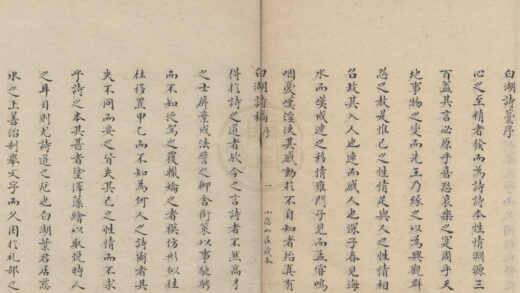 白湖詩藁序
心之至精者發而為詩詩本性情淵源三
百篇其言必原乎喜怒哀樂之寔周乎天
地事物之變而先王乃緣之以為興觀羣
怨之教是惟己之性情足與人之性情相
召故其入人也速而感人也深子春見海
水而嘆成連之移情雍門子見而孟嘗嗚
咽憂嘆淫泆其感動於不自知者殆真有
白湖詩稿 序 一 小隱山莊藏本
得於詩之道者歟今之言詩者不然高才
之士屏棄成法譬之御舍銜策以事馳騁
而不知泛駕之覆轍嬌之者模仿形似往
往移置甲乙而不知為何人之詩兩者其
失不同而要之皆失其己之性情而不求
乎詩之本其甚者塗澤藻繪以取悅時人
之耳目則尤詩道之厄也白湖葉君居慈
水之上善治制舉文字而久困於禮部之